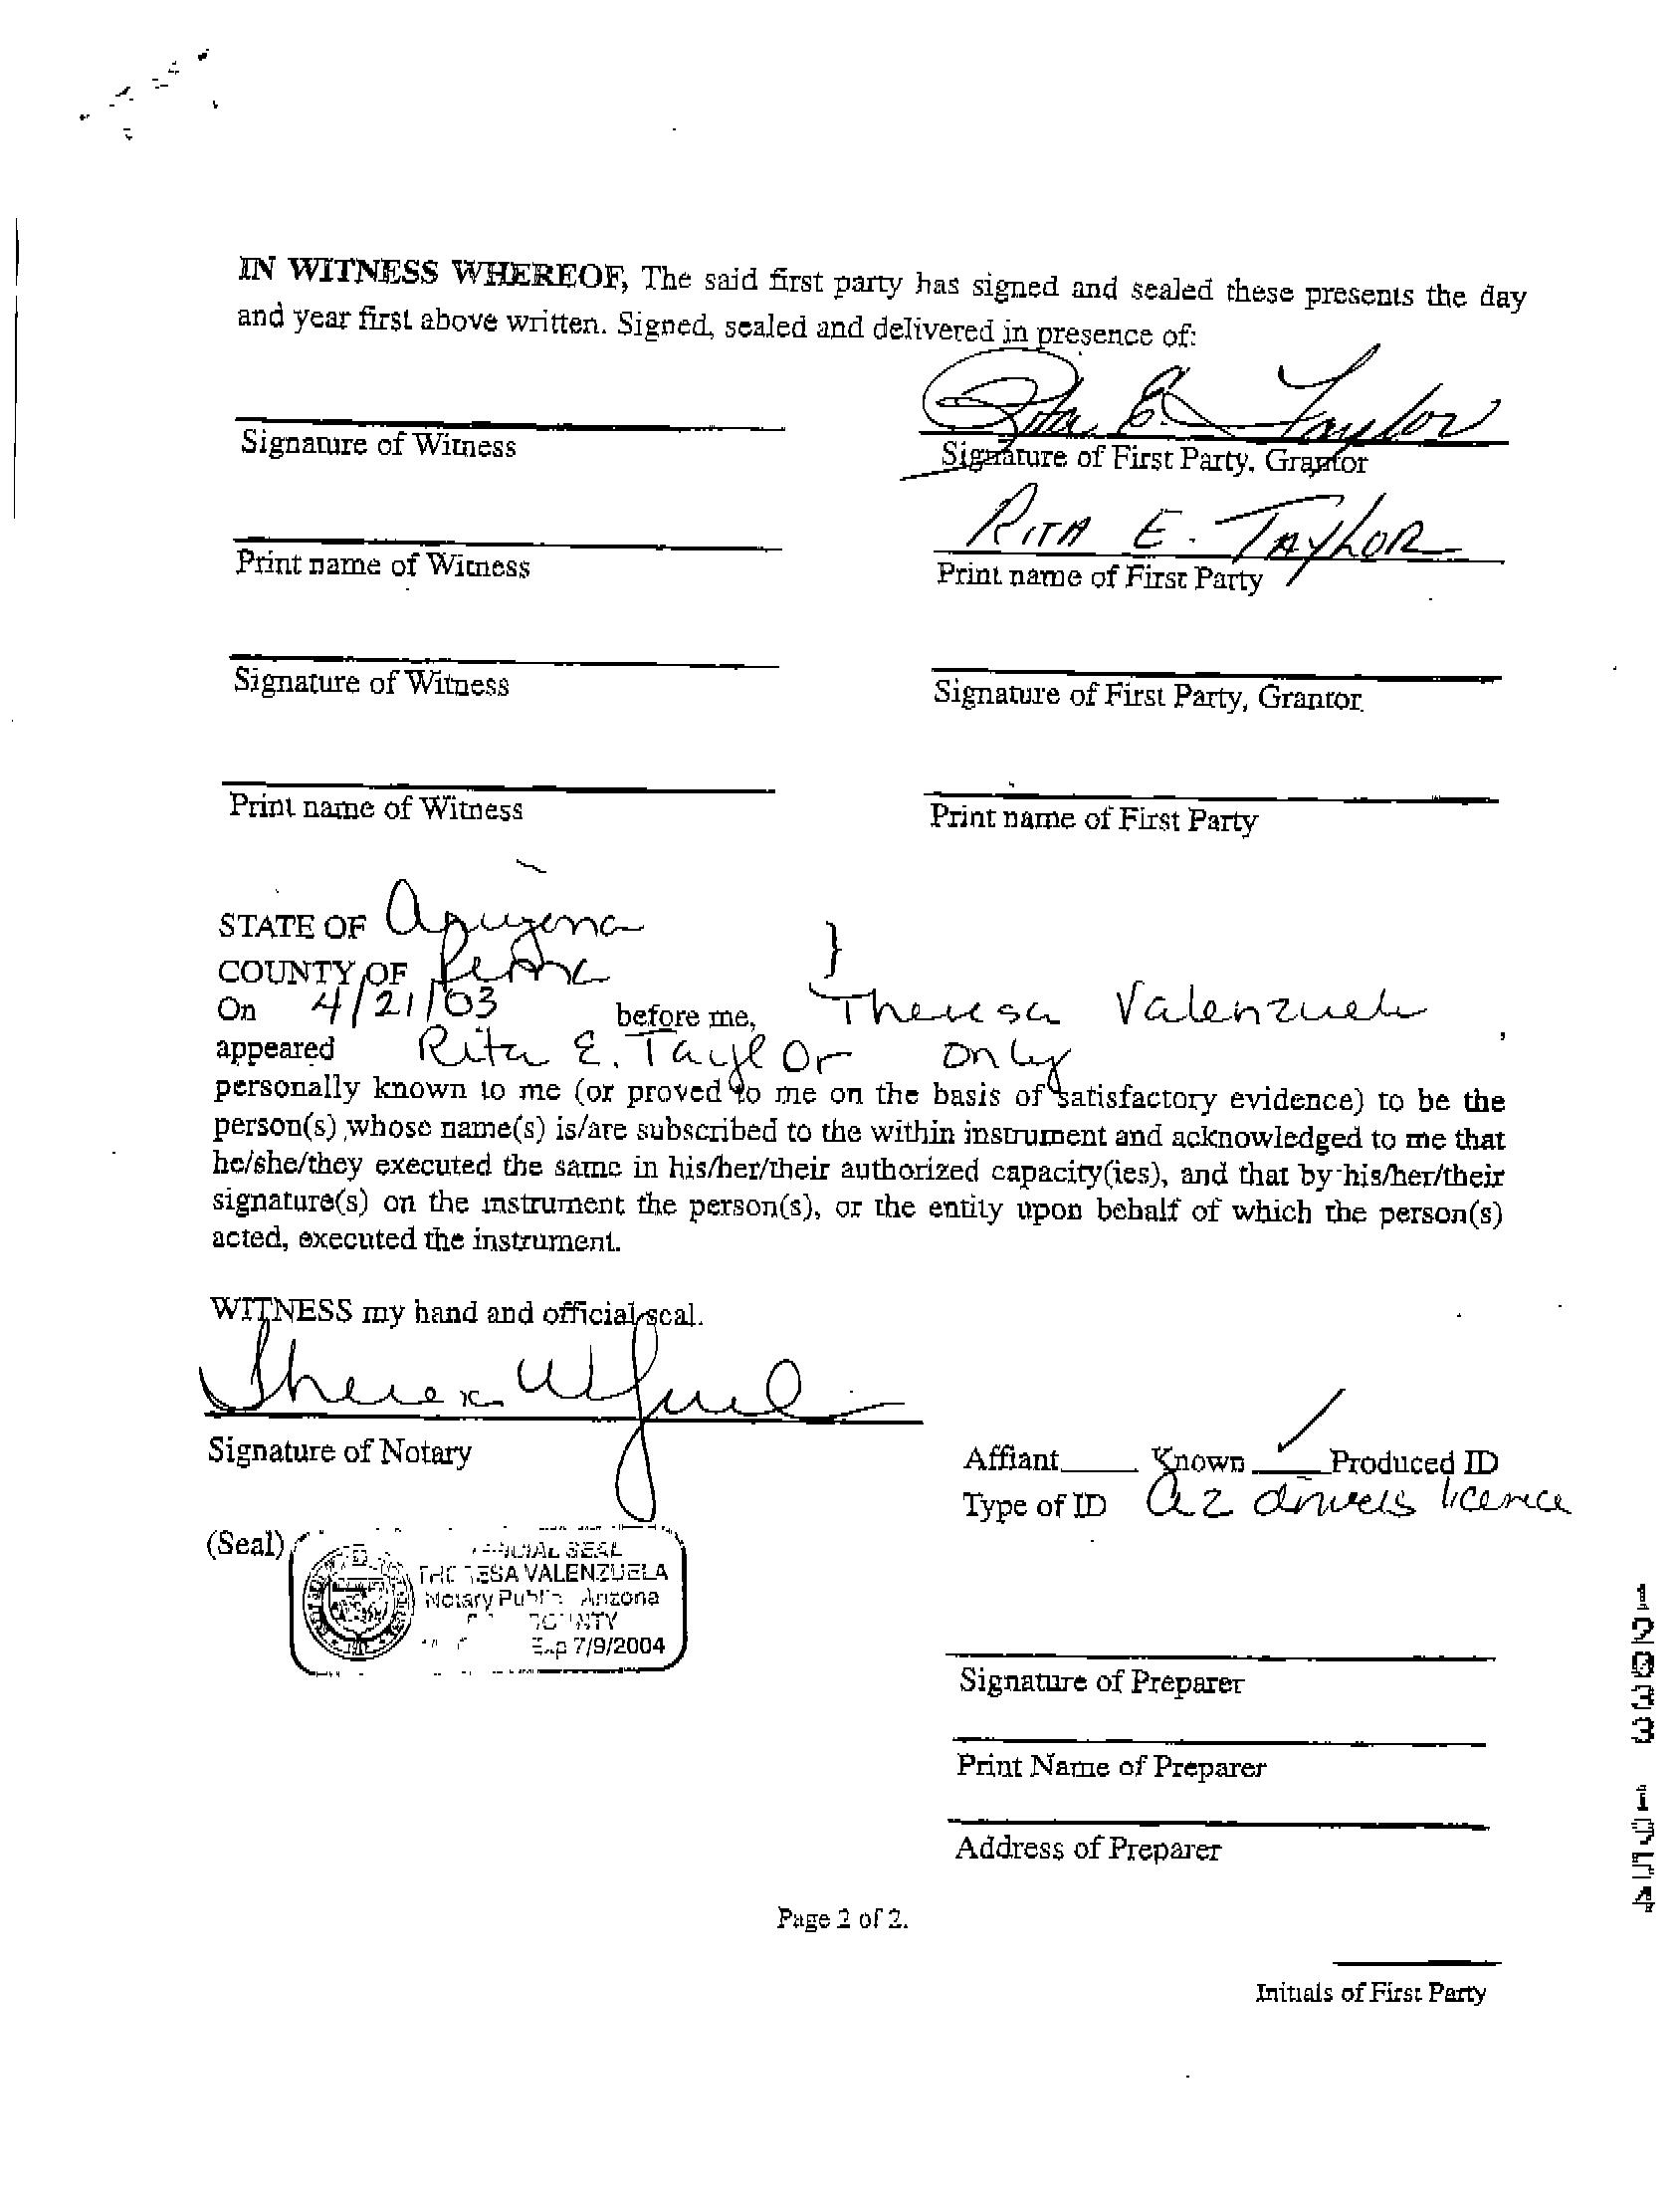 IN WITNESS WHEREOF, The said first party has signed and sealed these presents the day
and year first above written. Signed, sealed and delivered in presence of:
Rita E. Taylor
Signature of Witness
Signature of First Party, Grantor
RITA E. TAYLOR
Print name of Witness
Print name of First Party
Signature of Witness
Signature of First Party, Grantor
Print name of Witness
Print name of First Party
STATE OF Arizona }
COUNTY OF Pima
On 4/21/03 before me, Theresa Valenzuela,
appeared Rita E. Taylor only
personally known to me (or proved to me on the basis of satisfactory evidence) to be the
person(s) whose name(s) is/are subscribed to the within instrument and acknowledged to me that
he/she/they executed the same in his/her/their authorized capacity(ies), and that by his/her/their
signature(s) on the instrument the person(s), or the entity upon behalf of which the person(s)
acted, executed the instrument.
WITNESS my hand and official seal.
Signature of Notary
Affiant Known ✓ Produced ID
Type of ID az drivers licence
(Seal)
SEAL
THERESA VALENZUELA
Notary Public Arizona
COUNTY
Exp 7/9/2004
Signature of Preparer
Print Name of Preparer
Address of Preparer
12033 1054
Page 2 of 2.
Initials of First Party